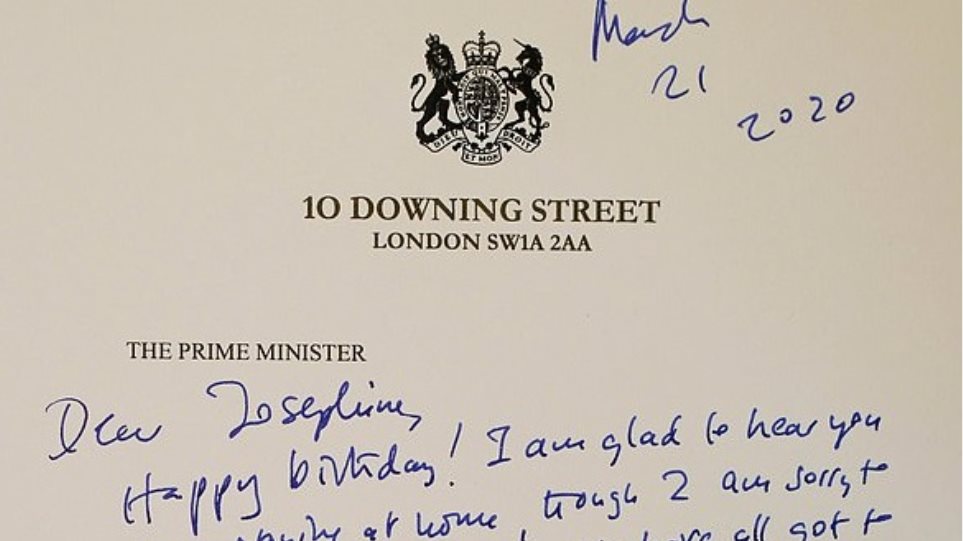 March
21
2020
DIEU ET MON DROIT
10 DOWNING STREET
LONDON SW1A 2AA
THE PRIME MINISTER
Dear Josephine,
Happy birthday! I am glad to hear you
at home, though I am sorry to
all got to